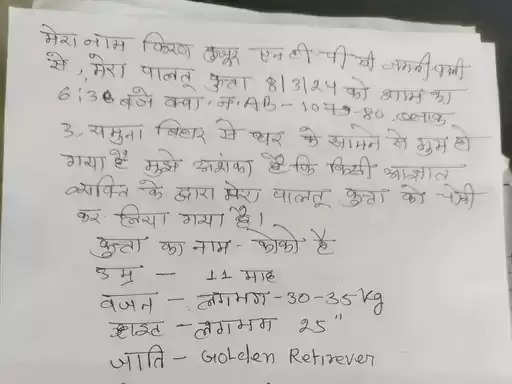 मेरा नाम किरण कुजूर एन टी पी सी जमनीपाली
से, मेरा पालतू कुत्ता 8/3/24 को शाम का
6:30 बजे क्वा. नं. AB-1079-80, ब्लाक
3, यमुना विहार से घर के सामने से गुम हो
गया है मुझे आशंका है कि किसी अज्ञात
व्यक्ति के द्वारा मेरा पालतू कुत्ता को चोरी
कर लिया गया है।
कुत्ता का नाम - कोको है
उम्र - 11 माह
वजन - लगभग - 30-35 kg
हाइट - लगभग 25"
जाति - Golden Retirever